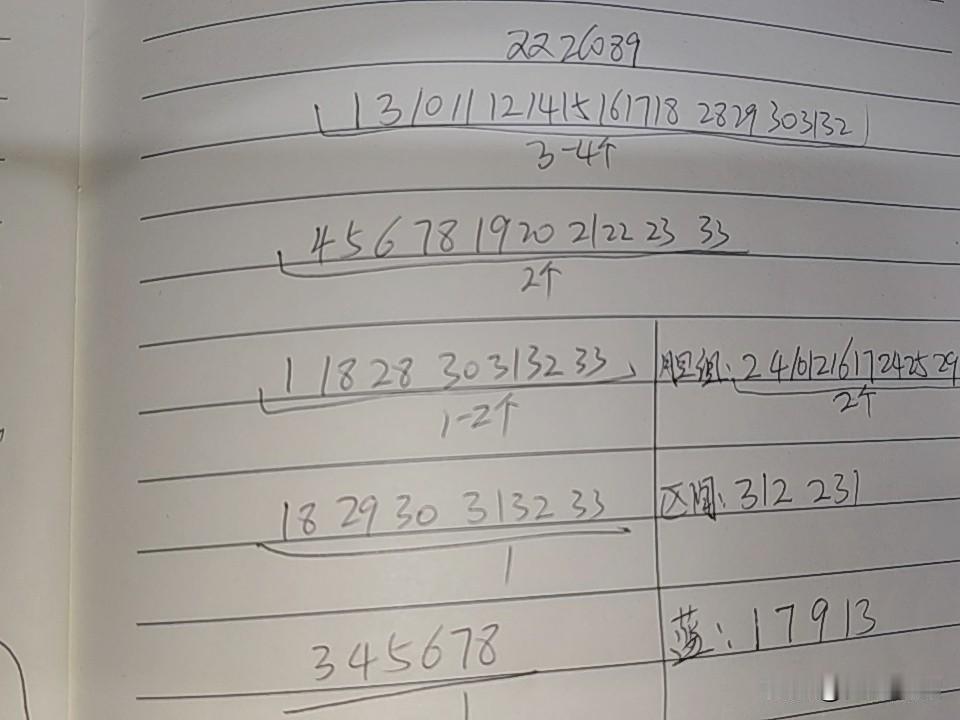 2226089
1 3 10 11 12 14 15 16 17 18 28 29 30 31 32
3-4个
4 5 6 7 8 19 20 21 22 23 33
2个
1 18 28 30 31 32 33
1-2个
胆组: 2 4 10 12 16 17 24 25 29
2个
18 29 30 31 32 33
1
区间: 312 231
3 4 5 6 7 8
1
蓝: 1 7 9 13